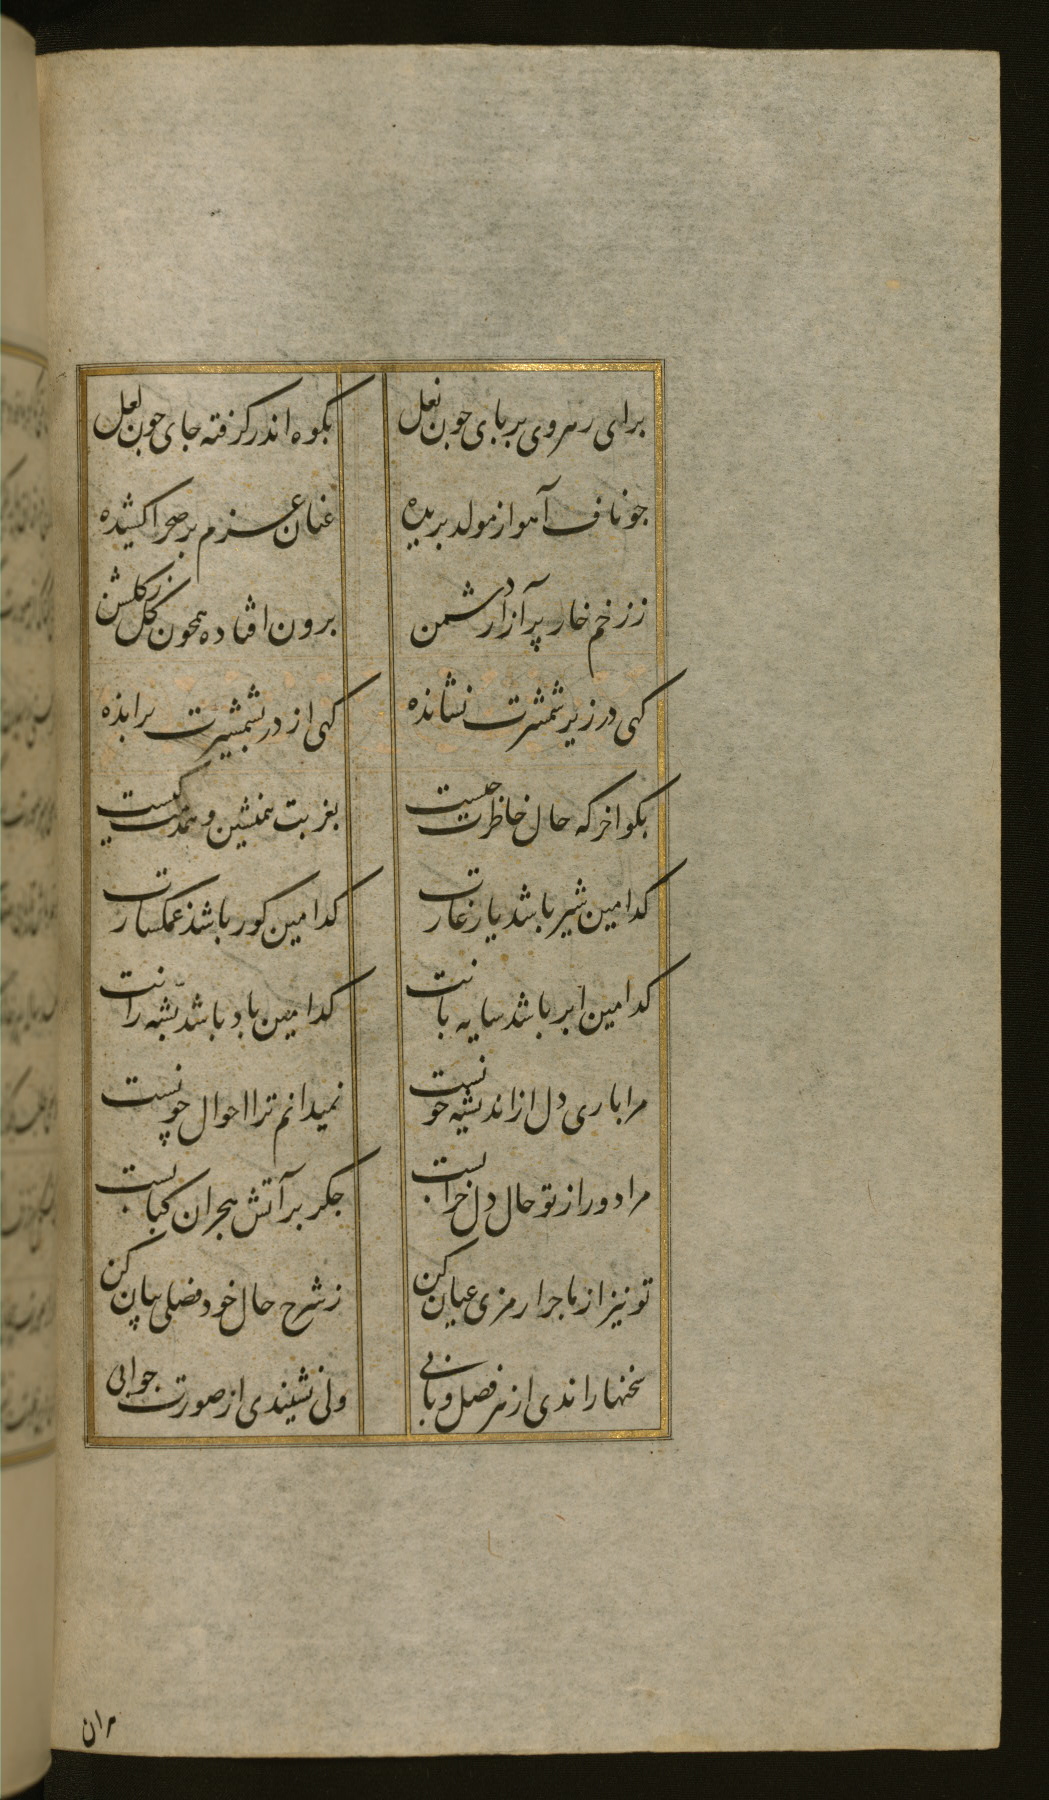 برای رهروی بر پای چون نعل
بکوه اندر کرفته جای چون لعل
جو ناف آهو از مولد بریده
عنان عزم بر صحرا کشیده
ز زخم خار پر آزار دشمن
برون افتاده همچون کل ز کلشن
کهی در زیر شمشیرت نشانده
کهی از در بشمشیرت برانده
بکو اخر که حال خاطرت جیست
بغربت همنشین و همدمت کیست
کدامین شیر باشد یار غارت
کدامین کور باشد غمکسارت
کدامین ابر باشد سایه بانت
کدامین باد باشد پشه رانت
مرا باری دل از اندیشه خونست
نمیدانم ترا احوال چونست
مرا دور از تو حال دل خرابست
جکر بر آتش هجران کبابست
تو نیز از ماجرا رمزی عیان کن
ز شرح حال خود فصلی بیان کن
سخنها راندی از هر فصل و بابی
ولی نشیندی از صورت جوابی